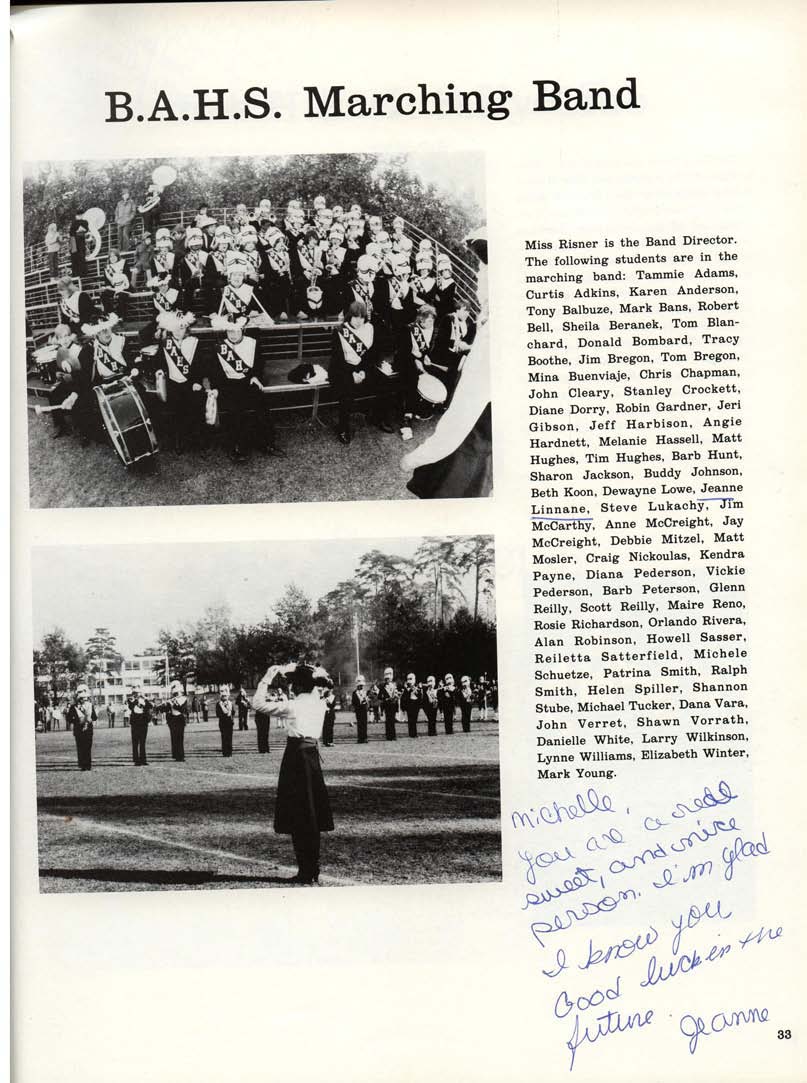 B.A.H.S. Marching Band
Miss Risner is the Band Director.
The following students are in the
marching band: Tammie Adams,
Curtis Adkins, Karen Anderson,
Tony Balbuze, Mark Bans, Robert
Bell, Sheila Beranek, Tom Blan-
chard, Donald Bombard, Tracy
Boothe, Jim Bregon, Tom Bregon,
Mina Buenviaje, Chris Chapman,
John Cleary, Stanley Crockett,
Diane Dorry, Robin Gardner, Jeri
Gibson, Jeff Harbison, Angie
Hardnett, Melanie Hassell, Matt
Hughes, Tim Hughes, Barb Hunt,
Sharon Jackson, Buddy Johnson,
Beth Koon, Dewayne Lowe, Jeanne
Linnane, Steve Lukachy, Jim
McCarthy, Anne McCreight, Jay
McCreight, Debbie Mitzel, Matt
Mosler, Craig Nickoulas, Kendra
Payne, Diana Pederson, Vickie
Pederson, Barb Peterson, Glenn
Reilly, Scott Reilly, Maire Reno,
Rosie Richardson, Orlando Rivera,
Alan Robinson, Howell Sasser,
Reiletta Satterfield, Michele
Schuetze, Patrina Smith, Ralph
Smith, Helen Spiller, Shannon
Stube, Michael Tucker, Dana Vara,
John Verret, Shawn Vorrath,
Danielle White, Larry Wilkinson,
Lynne Williams, Elizabeth Winter,
Mark Young.
Michelle,
You are a real
sweet, and nice
person. I'm glad
I know you
Good luck in the
future.
Jeanne
33